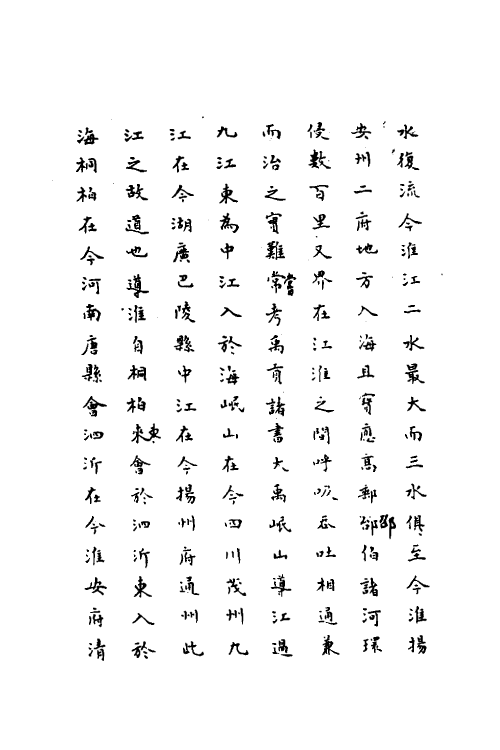 水復流今淮江二水最大而三水俱至今淮揚
安州二府地方入海且寳應髙郵邵邵伯諸河環
侵數百里又界在江淮之間呼吸吞吐相通兼
而治之寳難常嘗考禹貢諸書大禹岷山導江過
九江東為中江入於海岷山在今四川茂州九
江在今湖廣巴陵縣中江在今揚州府通州此
江之故道也導淮自桐柏來東會於泗沂東入於
海桐柏在今河南唐縣會泗沂在今淮安府清